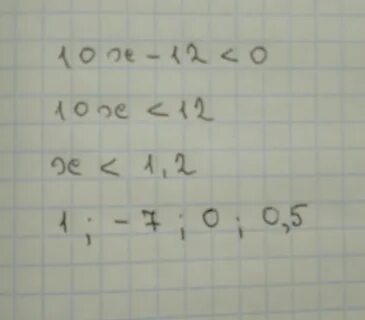 10x - 12 < 0
10x < 12
x < 1,2
1 ; - 7 ; 0 ; 0,5